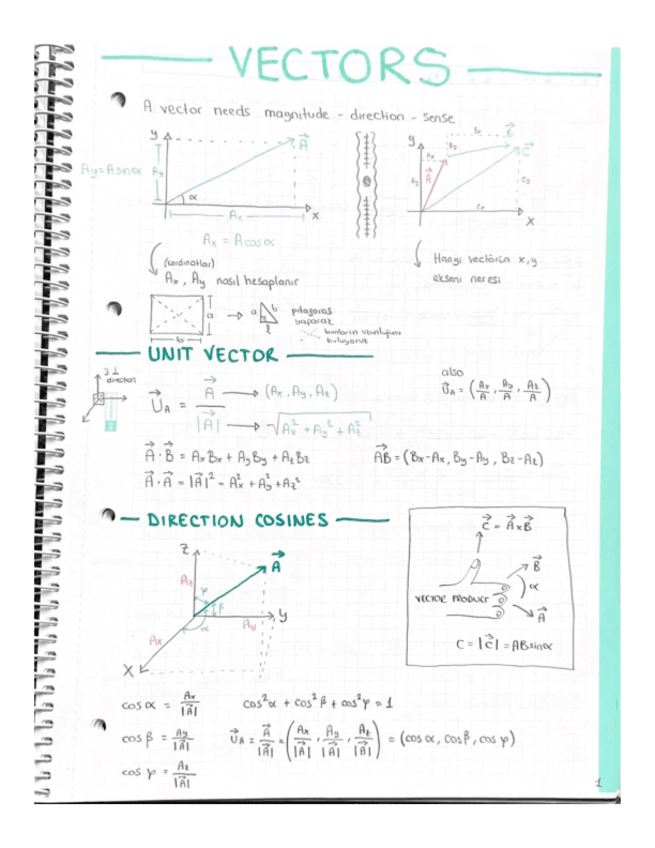 VECTORS
A vector needs magnitude - direction - sense
y
A⃗
Ay = Asinα
Ay
α
Ax
x
Ax = Acosα
y
Bx
B⃗
By
C⃗
Ax
A⃗
Ay
Cy
Cx
x
(kordinatlar)
Ax, Ay nasıl hesaplanır
Hangi vectörün x, y
ekseni neresi
a
b
a
b
pitagoras
yaparak
bunların uzunluğunu
buluyoruz
UNIT VECTOR
3 ⊥
direction
U⃗A = A⃗ / |A⃗|
A⃗ → (Ax, Ay, Az)
|A⃗| → √Ax² + Ay² + Az²
also
U⃗A = (Ax/A, Ay/A, Az/A)
A⃗ · B⃗ = AxBx + AyBy + AzBz
AB⃗ = (Bx-Ax, By-Ay, Bz-Az)
A⃗ · A⃗ = |A⃗|² = Ax² + Ay² + Az²
DIRECTION COSINES
z
A⃗
Az
φ
β
α
y
Ay
Ax
x
C⃗ = A⃗xB⃗
B⃗
α
VECTOR PRODUCT
A⃗
C = |C⃗| = ABsinα
cos α = Ax/|A⃗|
cos²α + cos²β + cos²φ = 1
cos β = Ay/|A⃗|
U⃗A = A⃗/|A⃗| = (Ax/|A⃗|, Ay/|A⃗|, Az/|A⃗|) = (cos α, cos β, cos φ)
cos φ = Az/|A⃗|
1